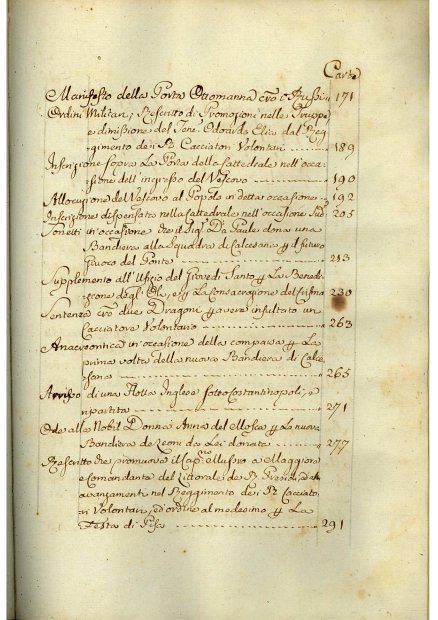 Carte
Manifesto della Porta Ottomanna cro i Russi 171
Ordini Militari, Rescritto di Promozioni nelle Truppe
e dimissione del Tene. Odoardo Elia dal Reg-
gimento dei R. Cacciatori Volontari 189
Inscrizione sopra La Porta della Cattedrale nell'occa-
sione dell'ingresso del Vescovo 190
Allocuzione del Vescovo al Popolo in detta occasione 192
Inscrizione dispensata nella Cattedrale nell'occasione 205
Sonetti in occasione che il Sig. De Paule dona una
Bandiera alla Squadra di Calcesana e il futuro
Giuoco del Ponte 213
Supplemento all'Ufizio del Giovedi Santo La Benedi-
zione degl'Olj, e La Consacrazione del Crisma 230
Sentenza cro due Dragoni avere insultato un
Cacciatore Volontario 263
Anacreontica in occasione della comparsa La
prima volta della nuova Bandiera di Calce-
sana 265
Arrivo di una Flotta Inglese sotto Costantinopoli, e
ripartita 271
Ode alla Nobil Donna Anna del Mosca La nuova
Bandiera de Leoni da Lei donata 277
Rescritto che promuove il Cap. a Maggiore
e Comandante del Littorale de R. Presidi, e altri
avanzamenti nel Reggimento dei R. Cacciato-
ri Volontari, ed ordine al medesimo La
Festa di Pisa 291